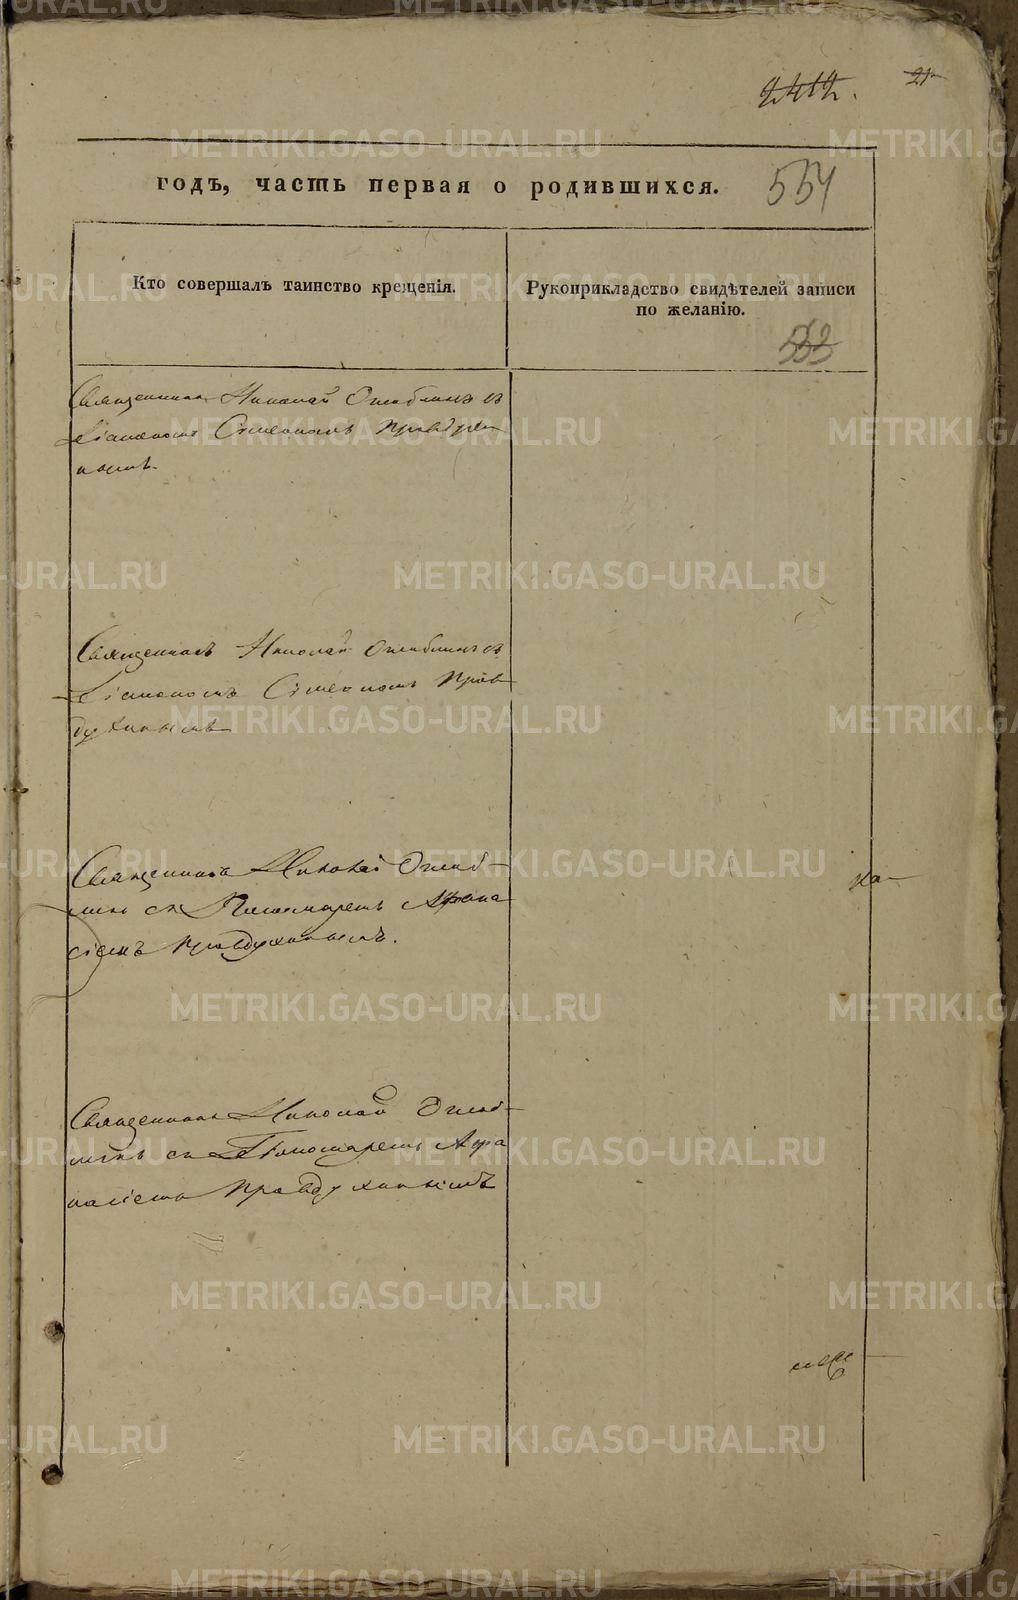 2412. 21
годъ, часть первая о родившихся. 554
Кто совершалъ таинство крещенія.
Рукоприкладство свидѣтелей записи
по желанію.
Священникъ Николай
Діакономъ Стефаномъ Правдухи
нымъ.
Священникъ Николай
Діакономъ Стефаномъ Прав
духинымъ
Священникъ Николай
съ Пономаремъ Афана
сіемъ Правдухинымъ.
Священникъ Николай
съ Пономаремъ Афа
насіемъ Правдухинымъ
METRIKI.GASO-URAL.RU